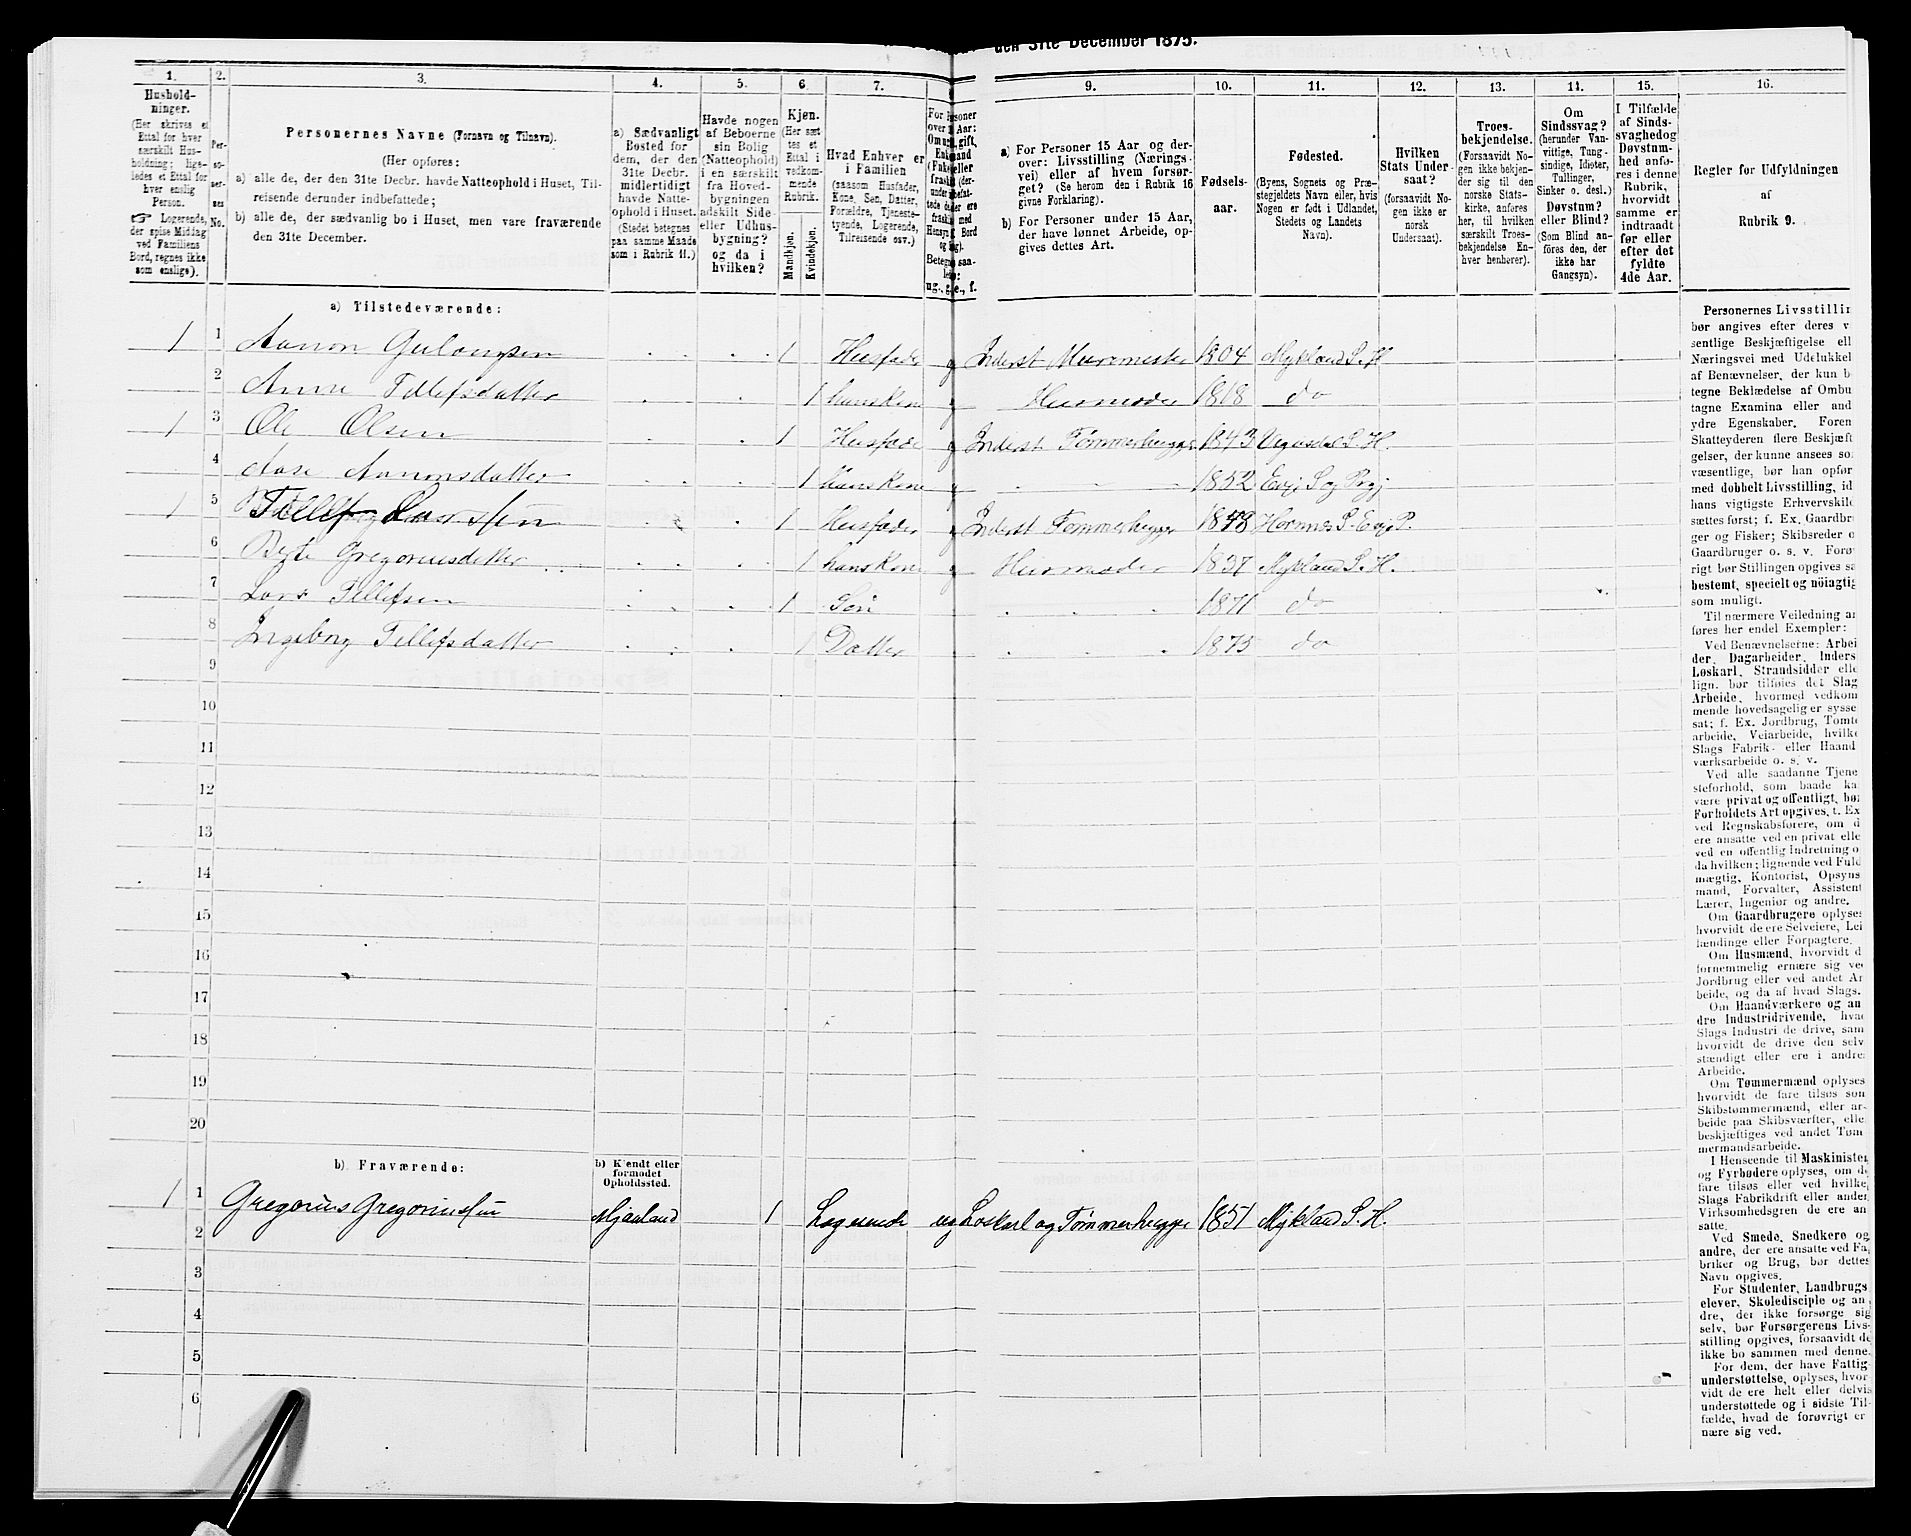 den 31te December 1875.
1. 2. 3. 4. 5. 6. 7. 9. 10. 11. 12. 13. 14. 15. 16.
Hushold-
ninger.
(Her skrives et
Ettal for hver
særskilt Hus-
holdning; lige-
ledes et Ettal for
hver enslig
Person.
☞ Logerende,
der spise Middag
ved Familiens
Bord, regnes ikke
som enslige).
Per-
so-
ner-
nes
No.
Personernes Navne (Fornavn og Tilnavn).
(Her opføres:
a) alle de, der den 31te Decbr. havde Natteophold i Huset, Til-
reisende derunder indbefattede;
b) alle de, der sædvanlig bo i Huset, men vare fraværende
den 31te December.
a) Sædvanligt
Bosted for
dem, der den
31te Decbr.
midlertidigt
havde Natte-
ophold i Huset.
(Stedet betegnes
paa samme Maade
som i Rubrik 11.)
Havde nogen
af Beboerne
sin Bolig
(Natteophold)
i en særskilt
fra Hoved-
bygningen
adskilt Side-
eller Udhus-
bygning?
og da i
hvilken?
Kjøn.
(Her sæt-
tes et
Ettal i
vedkom-
mende
Rubrik.
Mandkjøn.
Kvindekjøn.
Hvad Enhver er
i Familien
(saasom Husfader,
Kone, Søn, Datter,
Forældre, Tjeneste-
tyende, Logerende,
Tilreisende osv.)
a) For Personer 15 Aar og der-
over: Livsstilling (Nærings-
vei) eller af hvem forsør-
get? (Se herom den i Rubrik 16
givne Forklaring).
b) For Personer under 15 Aar,
der have lønnet Arbeide, op-
gives dettes Art.
Fødsels-
aar.
Fødested.
(Byens, Sognets og Præ-
stegjeldets Navn eller, hvis
Nogen er født i Udlandet,
Stedets og Landets
Navn).
Hvilken
Stats Under-
saat?
(forsaavidt No-
gen ikke er
norsk
Undersaat).
Troes-
bekjendelse.
(Forsaavidt No-
gen ikke bekjen-
der sig til den
norske Stats-
kirke, anføres
her, til hvilken
særskilt Troes-
bekjendelse En-
hver henhører).
Om
Sindssvag?
(herunder Van-
vittige, Tung-
sindige, Idioter,
Tullinger,
Sinker o. desl.)
Døvstum?
eller Blind?
(Som Blind an-
føres den, der
ikke har
Gangsyn).
I Tilfælde
af Sinds-
svaghedog
Døvstum-
hed anfø-
res i denne
Rubrik,
hvorvidt
samme er
indtraadt
før eller
efter det
fyldte
4de Aar.
Regler før Udfyldningen
af
Rubrik 9.
a) Tilstedeværende:
1 1 Aanon Gulaugsen 1 Husfader g Inderst Muremester 1804 Mykland S. H
2 Anne Tellefsdatter 1 hans Kone g Husmoder 1818 do
1 3 Ole Olsen 1 Husfader g Inderst Tømmerhugger 1843 Vegusdal S. H.
4 Aase Aanonsdatter 1 hans Kone g 1852 Evje S og Prgj
1 5 Tellef Larssen 1 Husfader g Inderst Tømmerhugger 1843 Hornnes S. Evje P.
6 Berte Gregoriusdatter 1 hans Kone g Husmoder 1837 Mykland S. H.
7 Lars Tellefsen 1 Søn 1871 do
8 Ingeborg Tellefsdatter 1 Datter 1875 do
9
10
11
12
13
14
15
16
17
18
19
20
b) Fraværende:
b) Kjendt eller
formodet
Opholdssted.
1 1 Gregorius Gregoriussen Mjaaland 1 Logerende ug Løskarl og Tømmerhugger 1851 Mykland S. H.
2
3
4
5
6
Personernes Livsstillin
bør angives efter deres v
sentlige Beskjæftigelse ell
Næringsvei med Udelukkel
af Benævnelser, der kun b
tegne Beklædelse af Ombu
tagne Examina eller and
ydre Egenskaber. Foren
Skatteyderen flere Beskjæft
gelser, der kunne ansees so
væsentlige, bør han opfør
med dobbelt Livsstilling, id
hans vigtigste Erhvervskild
sættes først; f. Ex. Gaardbr
ger og Fisker; Skibsreder o
Gaardbruger o. s. v. Forø
rigt bør Stillingen opgives sa
bestemt, specielt og nøiagtig
som muligt.
Til nærmere Veiledning an
føres her endel Exempler:
Ved Benævnelserne: Arbei
der, Dagarbeider, Inders
Løskarl, Strandsidder elle
lign. bør tilføies det Slag
Arbeide, hvormed vedkom
mende hovedsagelig er sysse
sat; f. Ex. Jordbrug, Tomte
arbeide, Veiarbeide, hvilke
Slags Fabrik- eller Haand
værksarbeide o. s. v.
Ved alle saadanne Tjene
steforhold, som baade ka
være privat og offentligt, bør
Forholdets Art opgives, t. Ex
ved Regnskabsførere, om d
ere ansatte ved en privat elle
ved en offentlig Indretning o
da hvilken; lignende ved Fuld
mægtig, Kontorist, Opsyns
mand, Forvalter, Assistent
Lærer, Ingeniør og andre.
Om Gaardbrugere oplyses
hvorvidt de ere Selveiere, Lei
lændinge eller Forpagtere.
Om Husmænd, hvorvidt d
fornemmelig ernære sig ve
Jordbrug eller ved andet Ar
beide, og da af hvad Slags.
Om Haandværkere og an
dre Industridrivende, hva
Slags Industri de drive, sam
hvorvidt de drive den selv
stændigt eller ere i andre
Arbeide.
Om Tømmermænd oplyses
hvorvidt de fare tilsøs som
Skibstømmermænd, eller ar-
beide paa Skibsværfter, elle
beskjæftiges ved andet Tøm
mermandsarbeide.
I Henseende til Maskinister
og Fyrbødere oplyses, om de
fare tilsøs eller ved hvilke
Slags Fabrikdrift eller anden
Virksomhedsgren de ere an
satte.
Ved Smede, Snedkere og
andre, der ere ansatte ved Fa
briker og Brug, bør dettes
Navn opgives.
For Studenter, Landbrugs
elever, Skoledisciple og an
dre, der ikke forsørge sig
selv, bør Forsørgerens Livs-
stilling opgives, forsaavidt de
ikke bo sammen med denne.
For dem, der have Fattig-
understøttelse, oplyses, hvor-
vidt de ere helt eller delvis
understøttede og i sidste Til-
fælde, hvad de forøvrigt er
nære sig ved.